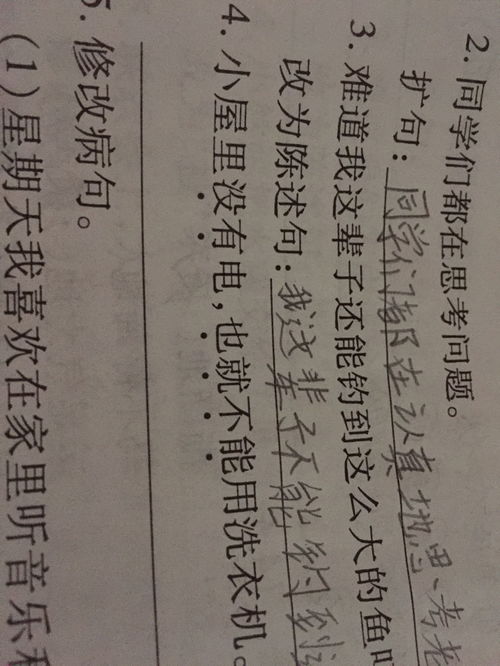 2. 同学们都在思考问题。
扩句：同学们都在认真地思考
3. 难道我这辈子还能钓到这么大的鱼
改为陈述句：我这辈子不能钓到这
4. 小屋里没有电，也就不能用洗衣机。
5. 修改病句。
(1)星期天我喜欢在家里听音乐和